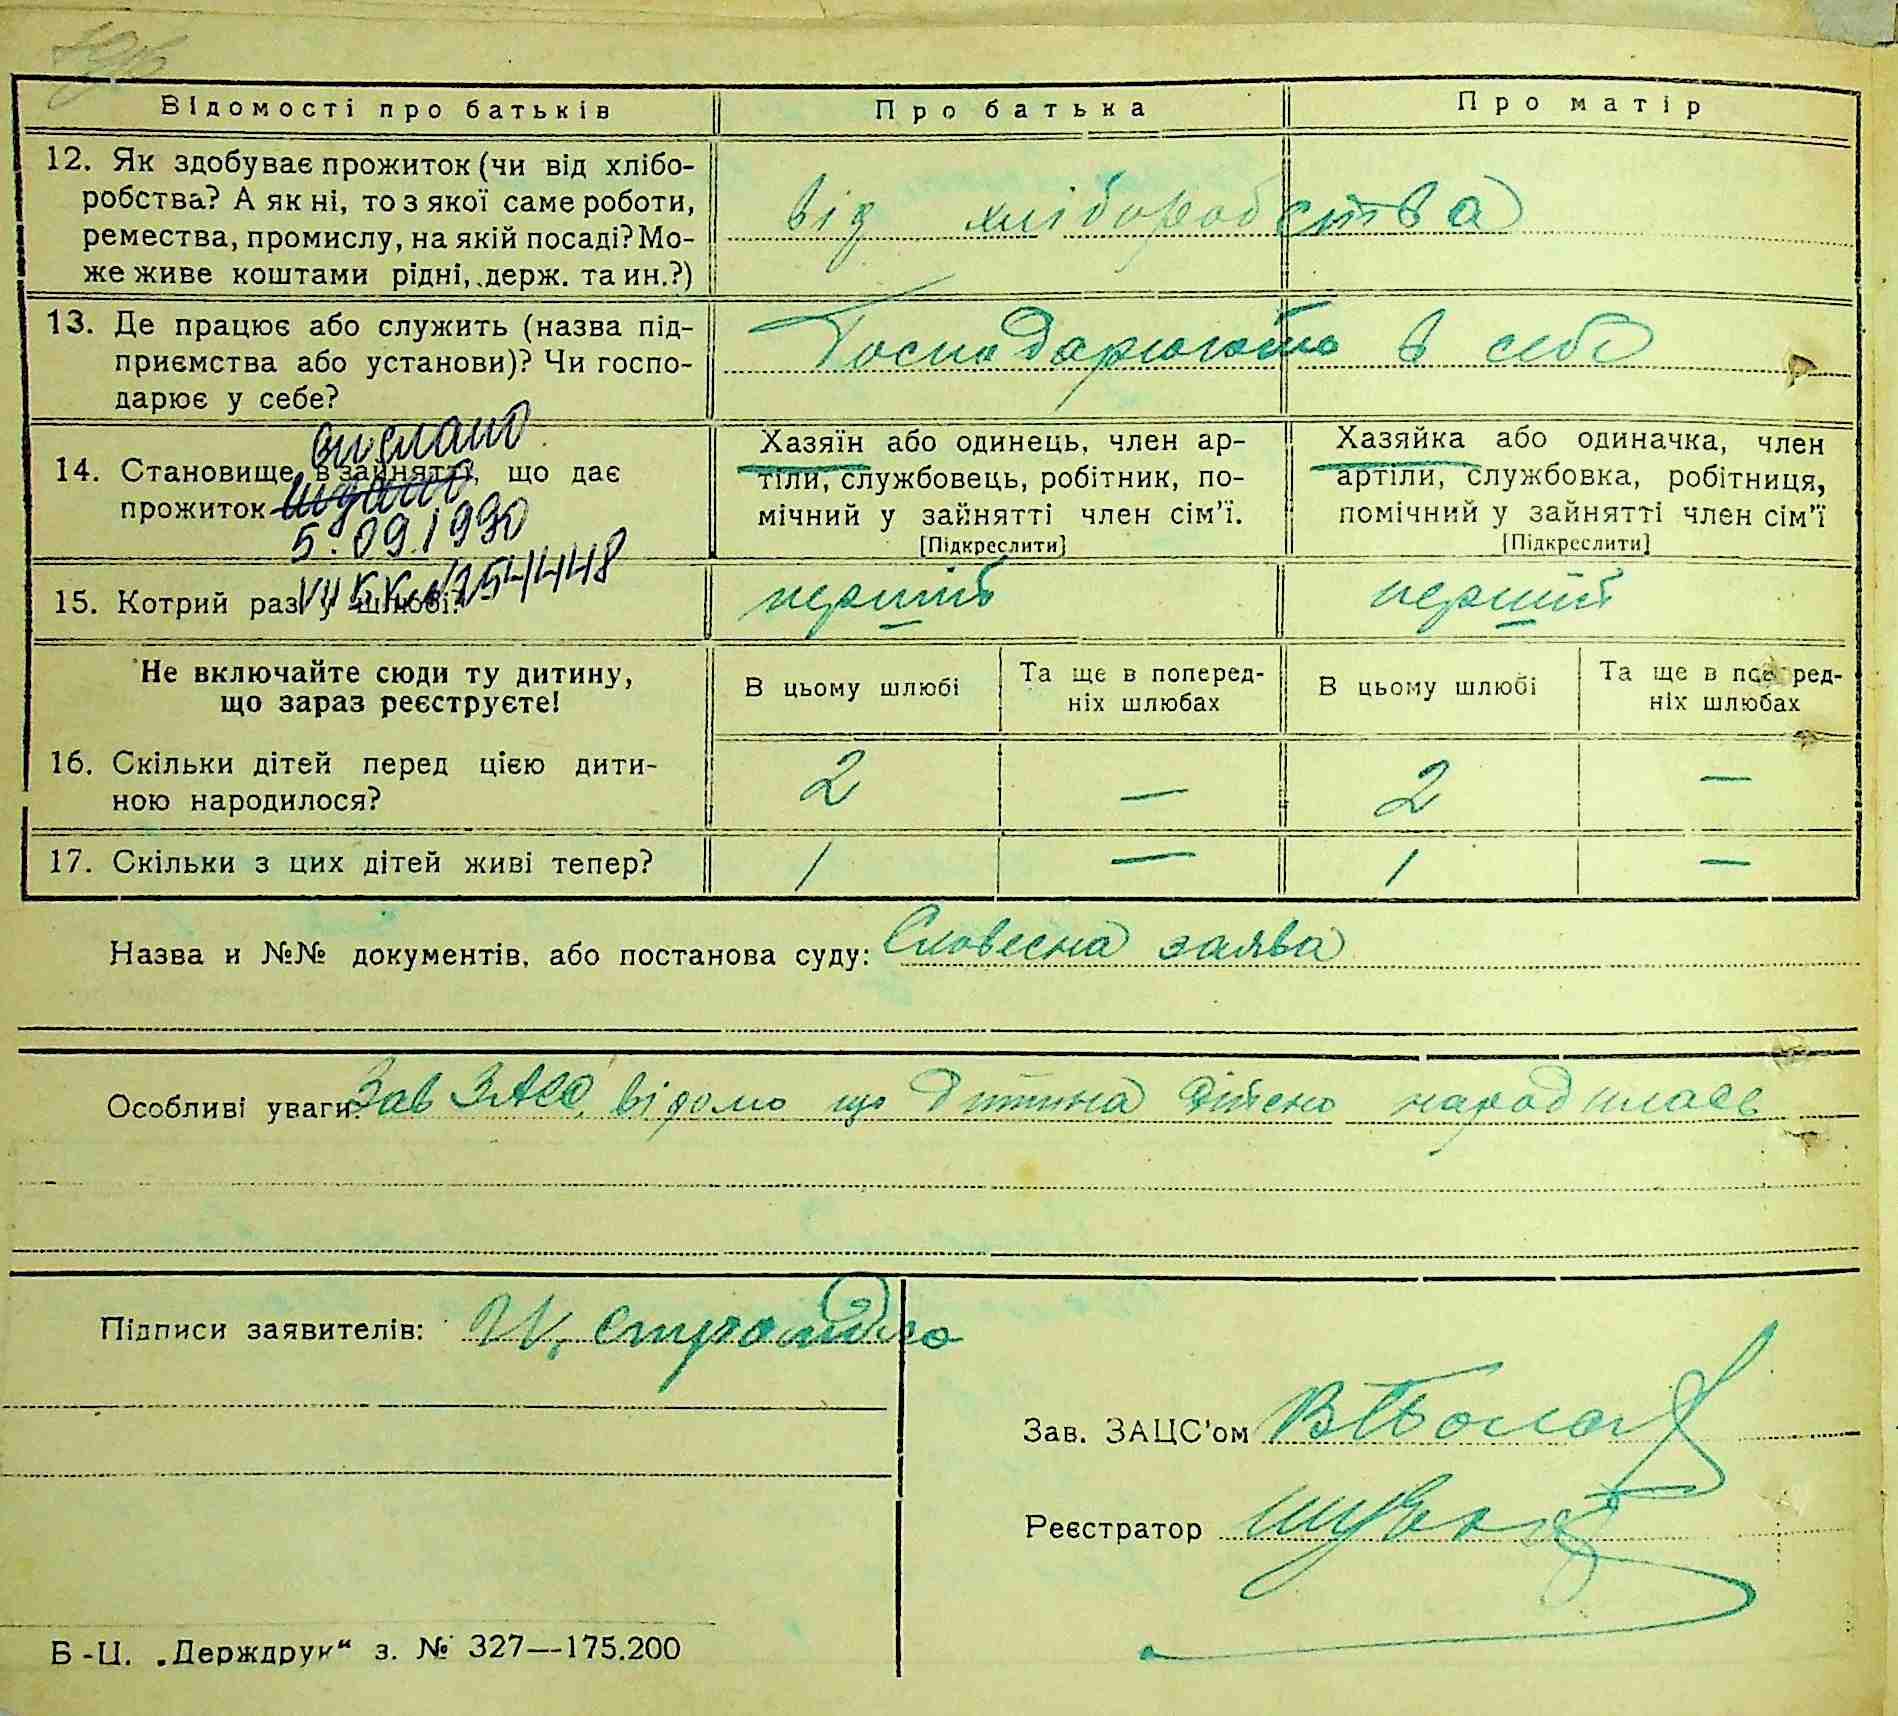 Відомості про батьків Про батька Про матір
12. Як здобуває прожиток (чи від хлібо-
робства? А як ні, то з якої саме роботи,
ремества, промислу, на якій посаді? Мо-
же живе коштами рідні, держ. та ин.?)
від хліборобства
13. Де працює або служить (назва під-
приємства або установи)? Чи госпо-
дарює у себе?
Господарюють в себе
14. Становище в зайнятті, що дає
прожиток
вислано
5.09.1990
Хазяїн або одинець, член ар-
тіли, службовець, робітник, по-
мічний у зайнятті член сім'ї.
[Підкреслити]
Хазяйка або одиначка, член
артіли, службовка, робітниця,
помічний у зайнятті член сім'ї
[Підкреслити]
15. Котрий раз у шлюбі?
перший перший
Не включайте сюди ту дитину,
що зараз реєструєте!
В цьому шлюбі
Та ще в поперед-
ніх шлюбах
В цьому шлюбі
Та ще в поперед-
ніх шлюбах
16. Скільки дітей перед цією дити-
ною народилося?
2 — 2 —
17. Скільки з цих дітей живі тепер? 1 — 1 —
Назва и №№ документів, або постанова суду: Словесна заява
Особливі уваги: Зав ЗАЦС відомо що дитина дійсно народилась
Підписи заявителів:
Зав. ЗАЦС'ом
Реєстратор
Б-Ц. „Держдрук“ з. № 327—175.200